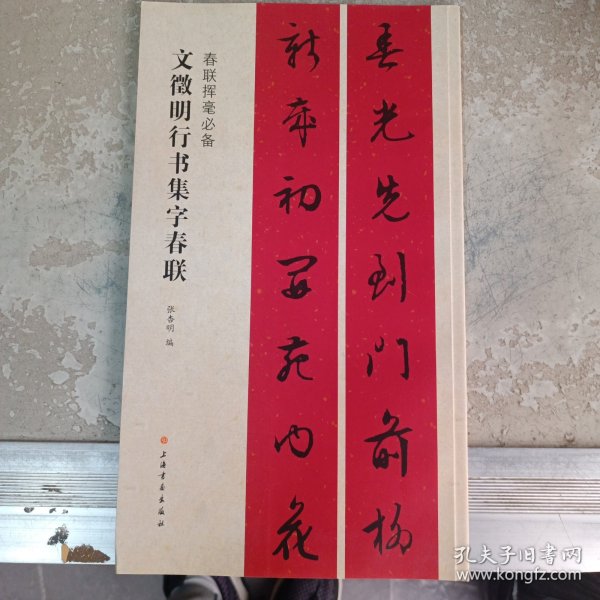 春光先到门前柳
新年初开苑内花
春联挥毫必备
文徵明行书集字春联
张杏明 编
上海书画出版社
孔夫子旧书网
www.kongfz.com